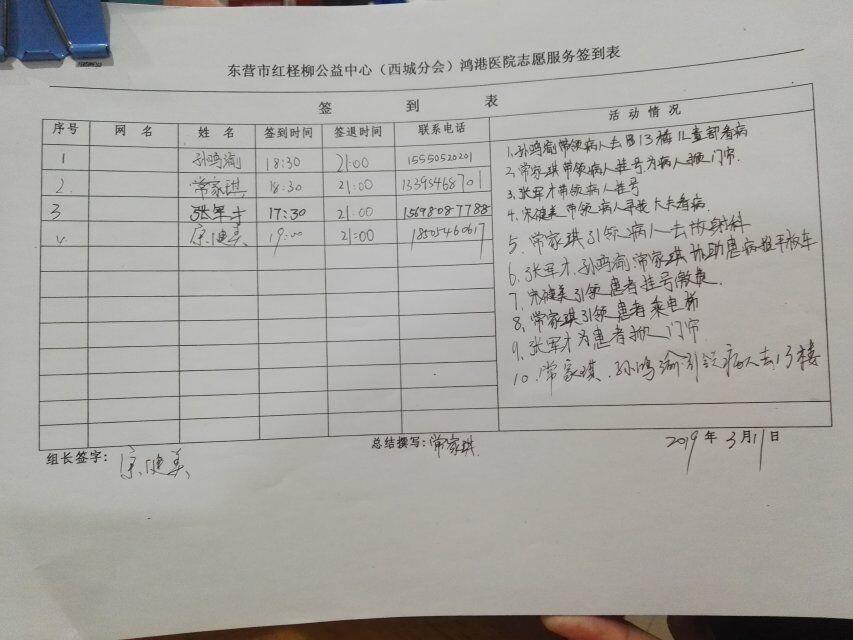 东营市红柽柳公益中心（西城分会）鸿港医院志愿服务签到表
签 到 表
活动情况
序号 网 名 姓 名 签到时间 签退时间 联系电话
1 孙鸿瑜 18:30 21:00 15550520201
2. 常家琪 18:30 21:00 13395468701
3 张军才 17:30 21:00 15698087788
宋健美 19:00 21:00 18505460617
1.孙鸿瑜带领病人去 13楼儿童部看病
2.常家琪带领病人挂号为病人掀门帘.
3.张军才带领病人挂号
4.宋健美带领病人寻找大夫看病.
5.常家琪引领病人去放射科
6.张军才.孙鸿瑜.常家琪协助患病 平板车
7.宋健美引领患者挂号缴费.
8.常家琪引领患者乘电梯
9.张军才为患者掀门帘
10.常家琪.孙鸿瑜引领病人去13楼
组长签字: 宋健美
总结撰写: 常家琪.
2019年3月11日